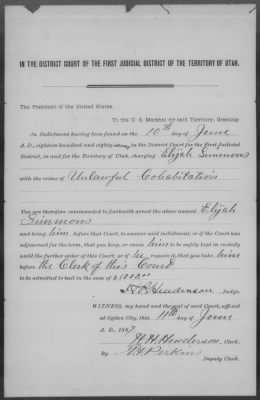 IN THE DISTRICT COURT OF THE FIRST JUDICIAL DISTRICT OF THE TERRITORY OF UTAH.
The President of the United States.
To the U. S. Marshal for said Territory, Greeting:
An Indictment having been found on the 10th day of June
A. D., eighteen hundred and eighty-seven, in the District Court for the First Judicial
District, in and for the Territory of Utah, charging Elijah Simmons
with the crime of Unlawful Cohabitation
You are therefore commanded to forthwith arrest the above named Elijah
Simmons
and bring him before that Court, to answer said indictment, or if the Court has
adjourned for the term, that you keep, or cause him to be safely kept in custody
until the further order of this Court; or if he require it, that you take him
before the Clerk of this Court
to be admitted to bail in the sum of $
H P Henderson, Judge.
WITNESS, my hand and the seal of said Court, affixed
at Ogden City, this 11th day of June
A. D. 1887
H. H. Henderson, Clerk.
By Perkins
Deputy Clerk.